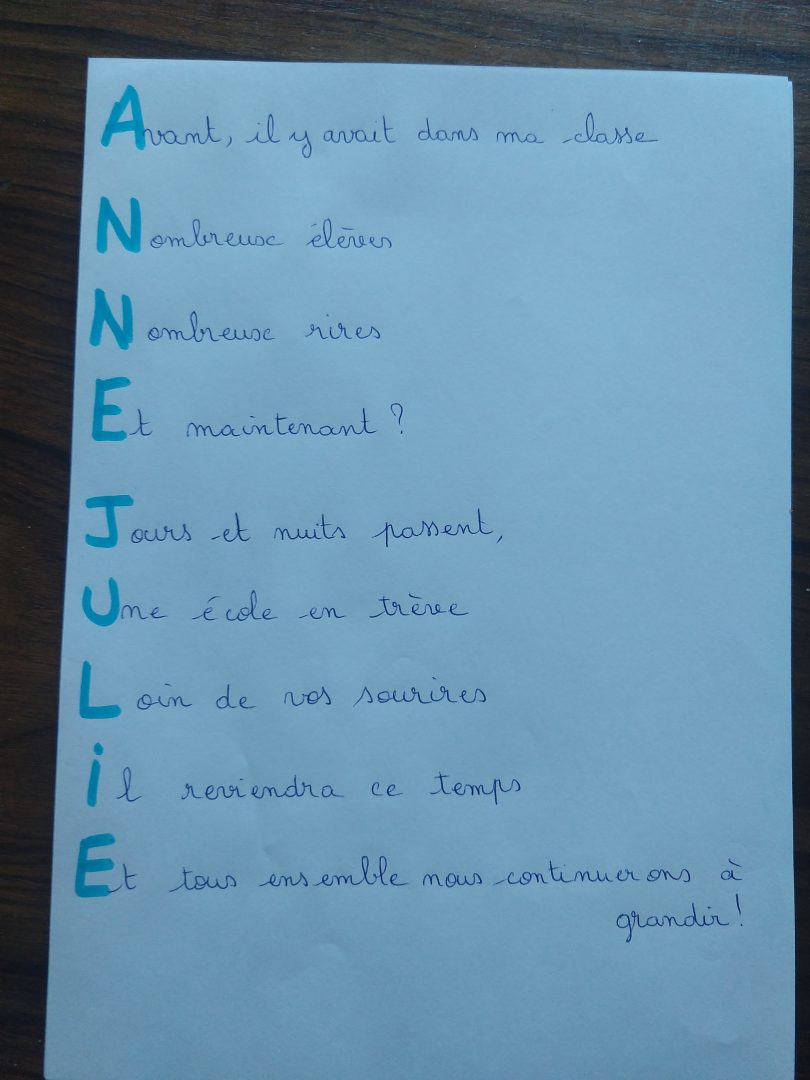 Avant, il y avait dans ma classe
Nombreuse élèves
Nombreuse rires
Et maintenant ?
Jours et nuits passent,
Une école en trève
Loin de vos sourires
il reviendra ce temps
Et tous ensemble nous continuerons à
grandir !